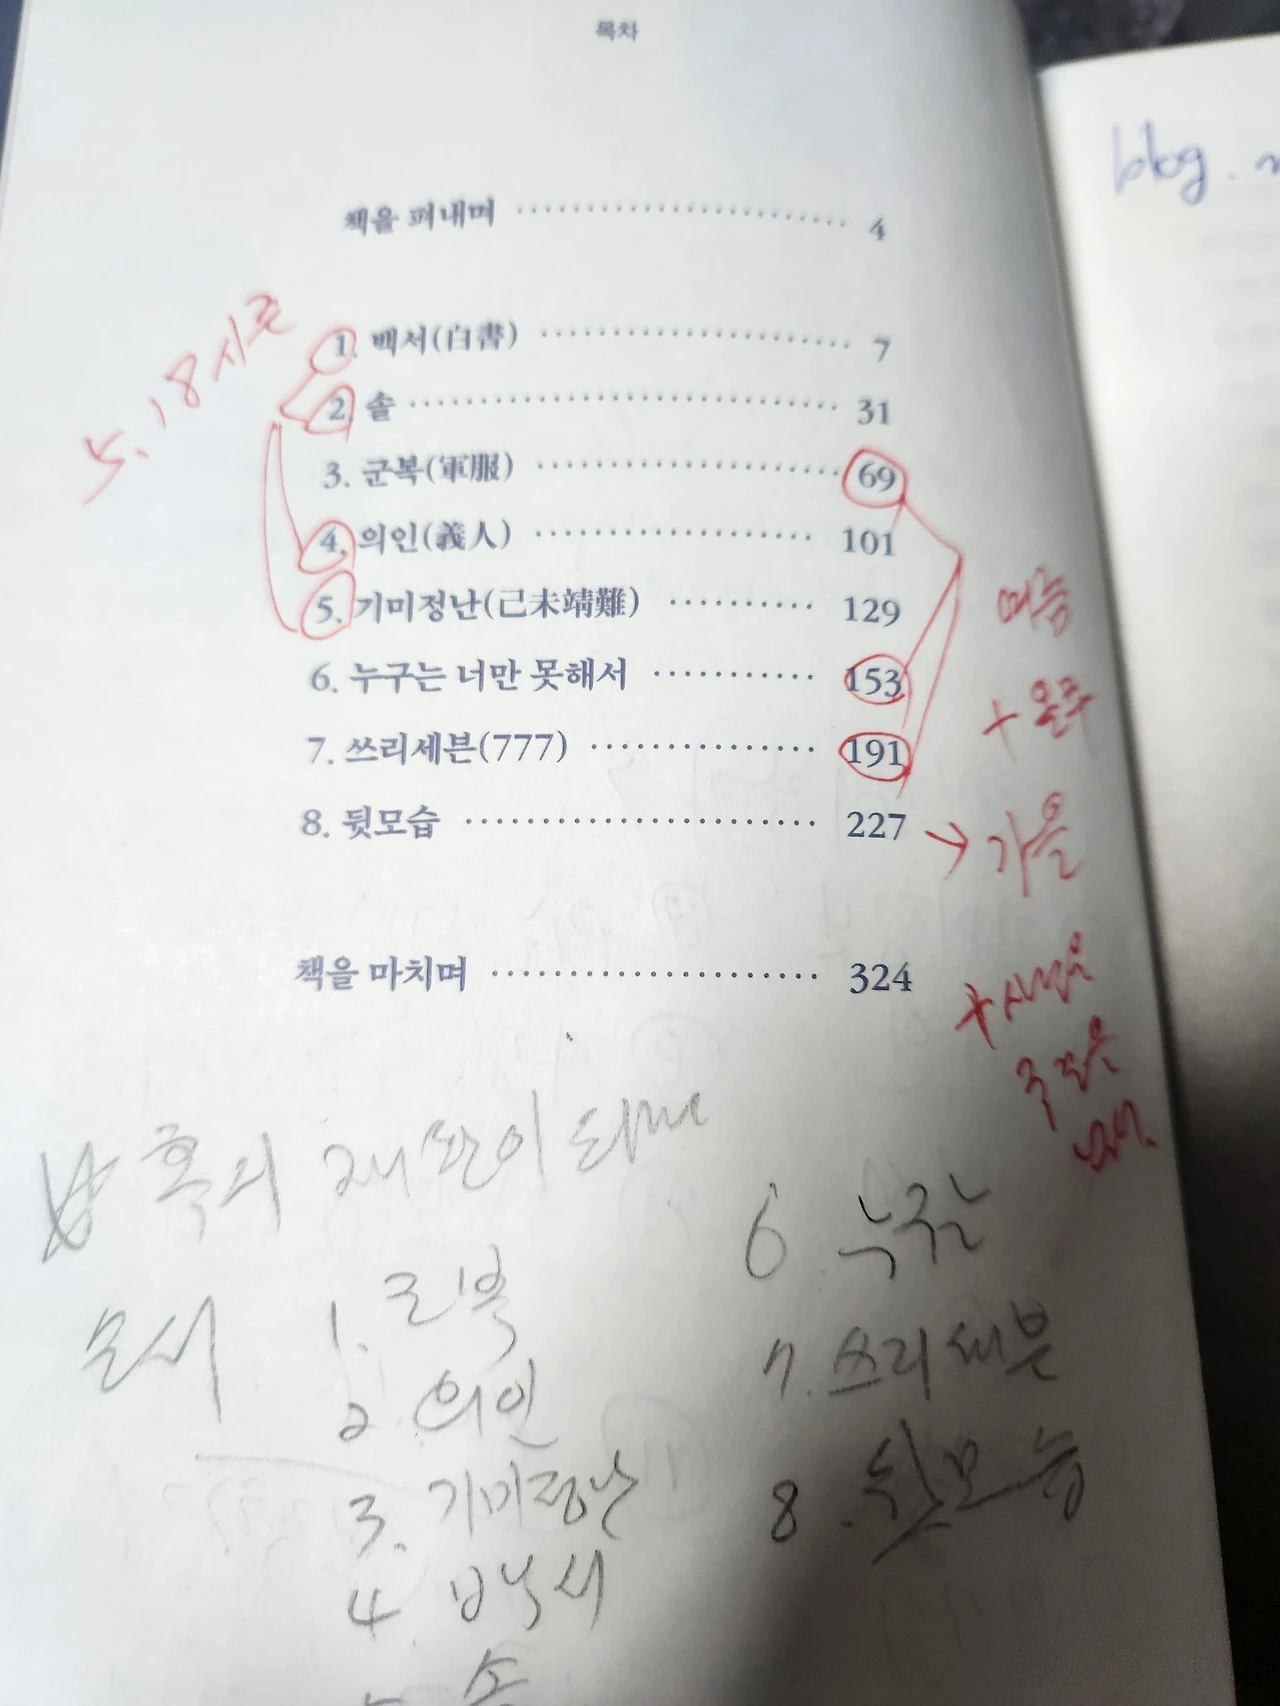 목차
blog.
책을 펴내며 ························ 4
5.18 시즌
1. 백서(白書) ························ 7
2 솔 ································ 31
3. 군복(軍服) ························ 69
4. 의인(義人) ···················· 101
5. 기미정난(己未靖難) ·········· 129
여름
6. 누구는 너만 못해서 ············ 153
+ 완주
7. 쓰리세븐(777) ················ 191
8. 뒷모습 ························ 227 → 가을
책을 마치며 ······················ 324
혹시 재판이 되면
순서
1. 군복
2. 의인
3. 기미정난
4. 백서
솔
6. 누구는
7. 쓰리세븐
8. 뒷모습